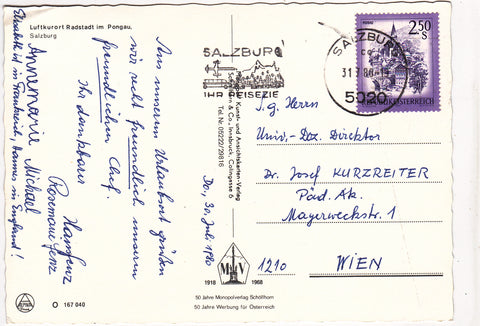 Luftkurort Radstadt im Pongau,
Salzburg
Aus unserem Urlaubsort grüßen
wir recht freundlich unseren
freundlichen Chef.
Ihr dankbarer
Annemarie Michael
Rosemarie
Elisabeth ist in Frankreich, Hannes in England!
Do., 30. Juli 1980
O 167 040
SALZBURG
IHR REISEZIEL
Kunst- und Ansichtskarten-Verlag
& Co., Innsbruck, Colingasse 6
Tel. Nr. 05222/29816
1918 1968
50 Jahre Monopolverlag Schöllhorn
50 Jahre Werbung für Österreich
SALZBURG
5020
2.50
S
REPUBLIK ÖSTERREICH
S.g. Herrn
Univ.-Doz. Direktor
Dr. Josef KURZREITER
Päd. Ak.
Mayerweckstr. 1
1210 WIEN